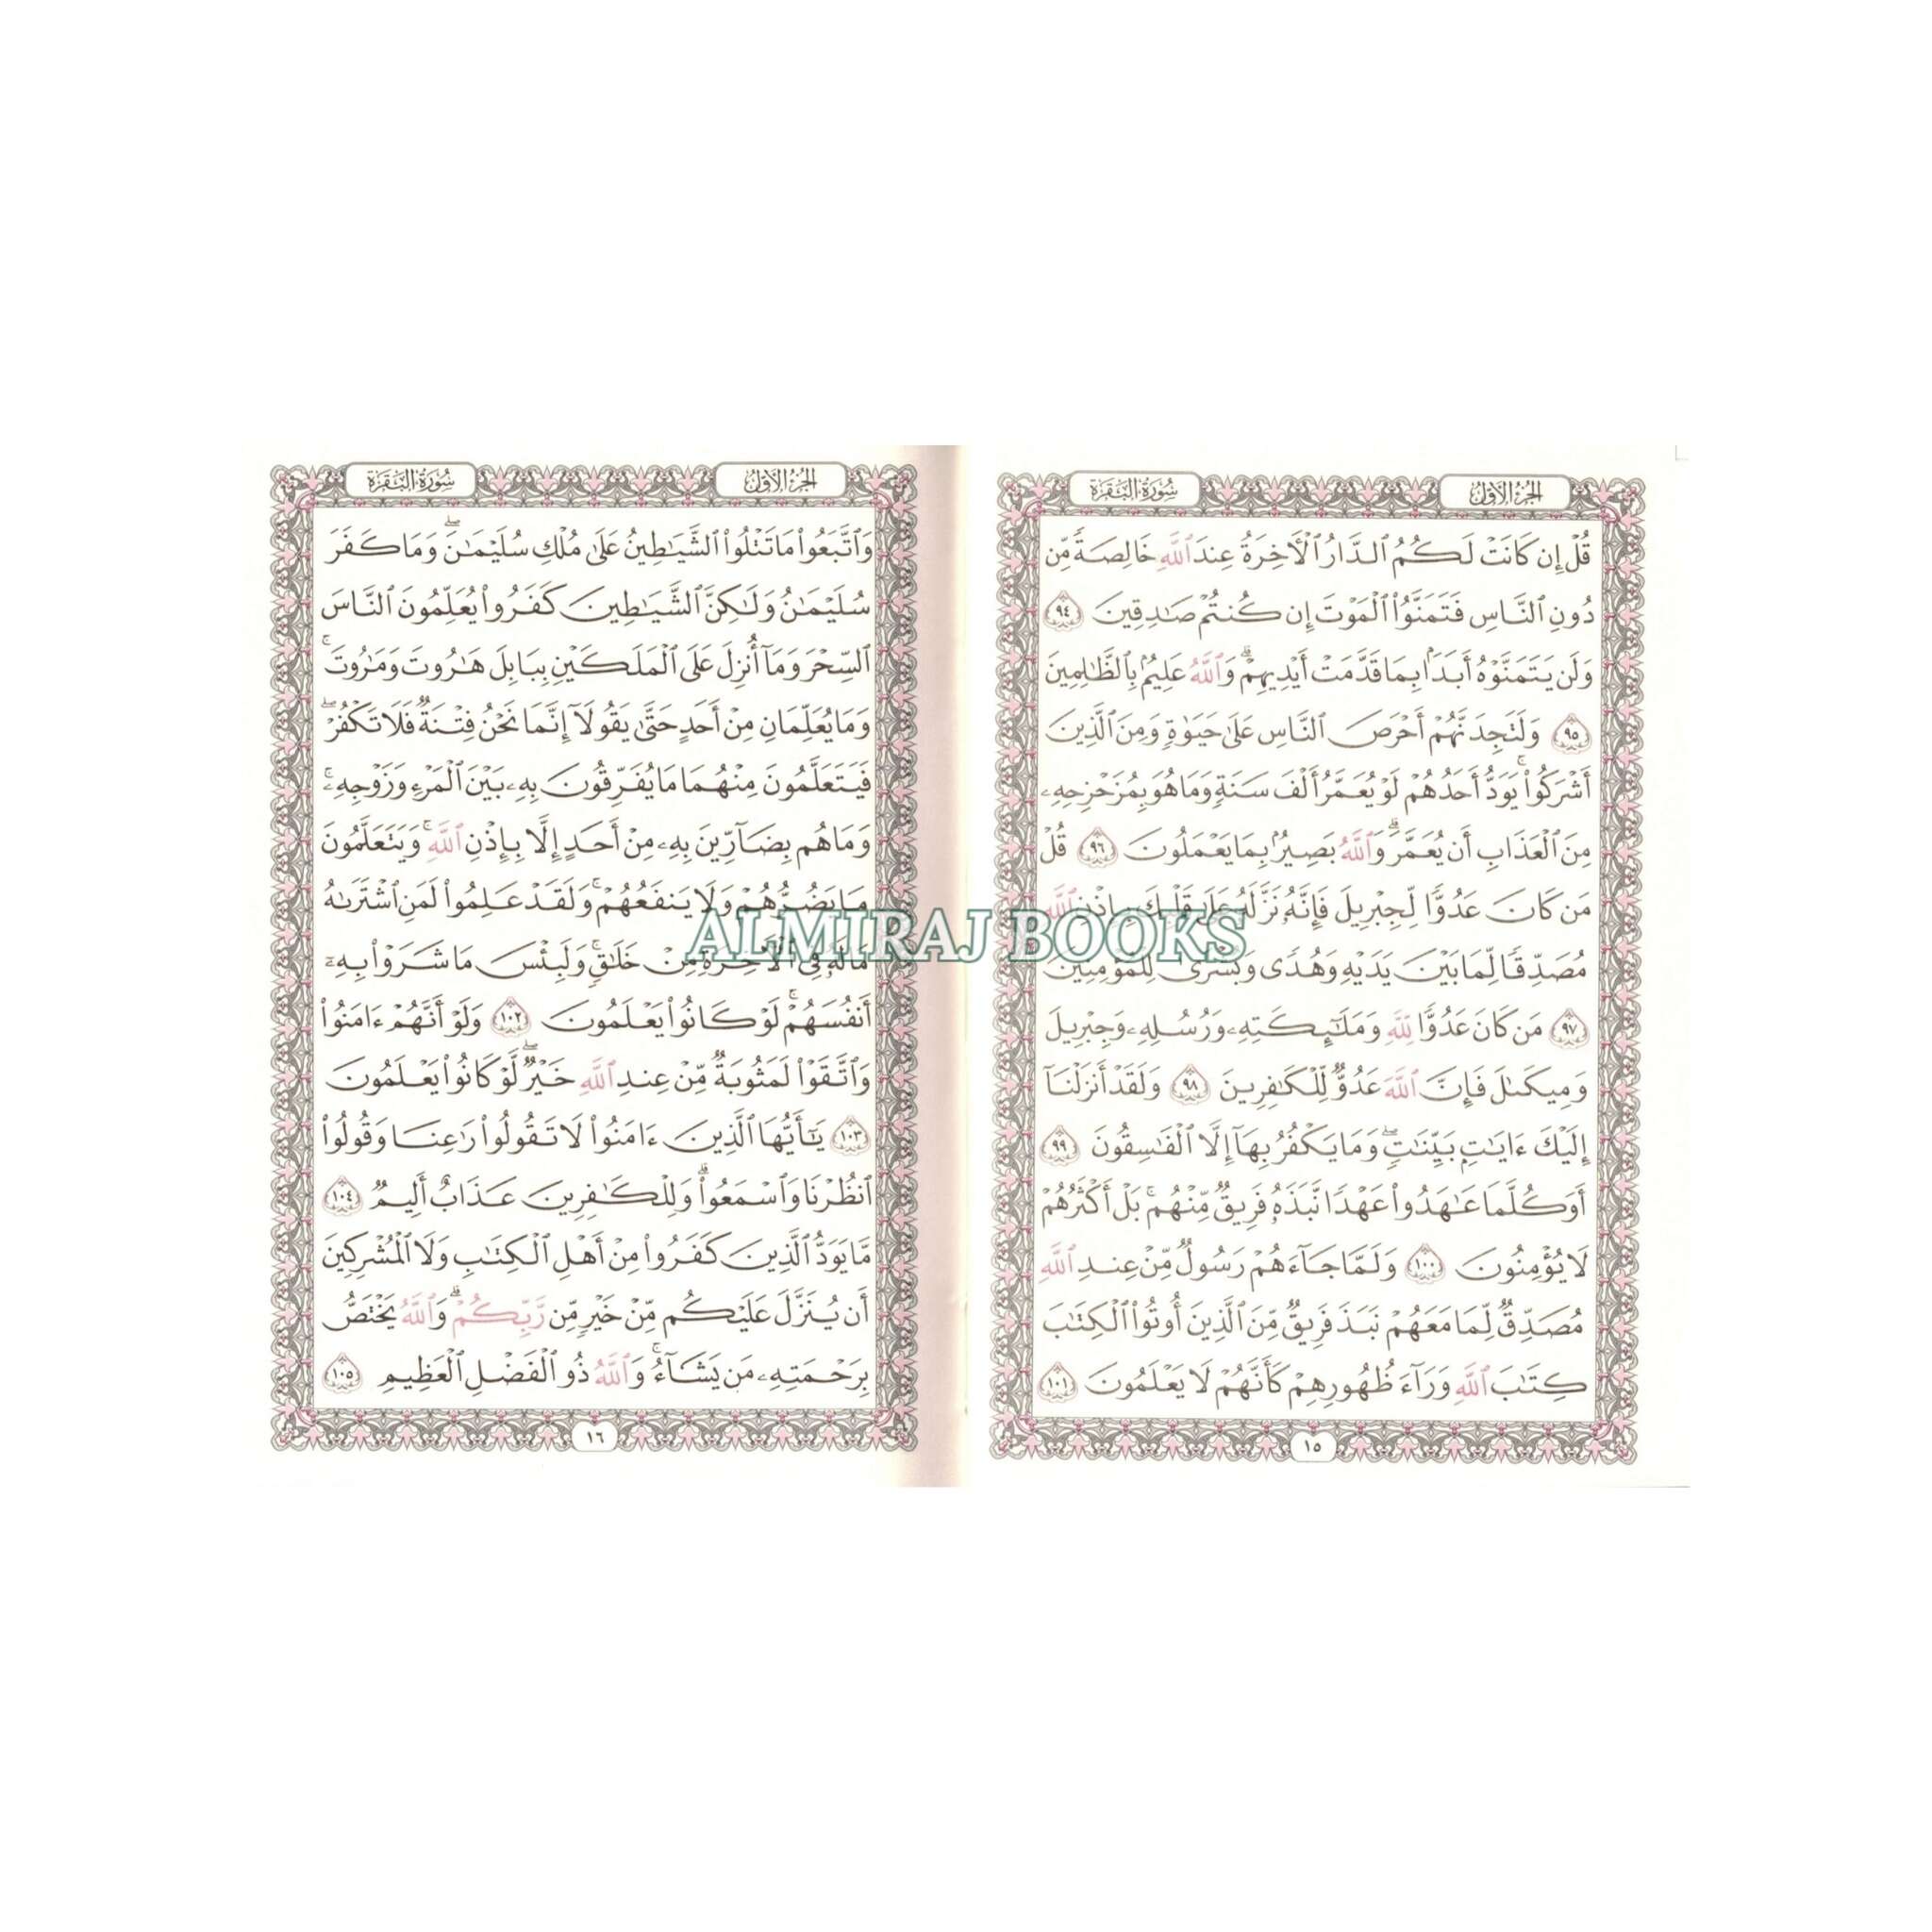 الجزء الأول
سورة البقرة
قُلْ إِن كَانَتْ لَكُمُ ٱلدَّارُ ٱلْأَخِرَةُ عِندَ ٱللَّهِ خَالِصَةً مِّن
دُونِ ٱلنَّاسِ فَتَمَنَّوُا۟ ٱلْمَوْتَ إِن كُنتُمْ صَـٰدِقِينَ ٩٤
وَلَن يَتَمَنَّوْهُ أَبَدًۢا بِمَا قَدَّمَتْ أَيْدِيهِمْ ۗ وَٱللَّهُ عَلِيمٌۢ بِٱلظَّـٰلِمِينَ
٩٥ وَلَتَجِدَنَّهُمْ أَحْرَصَ ٱلنَّاسِ عَلَىٰ حَيَوٰةٍ وَمِنَ ٱلَّذِينَ
أَشْرَكُوا۟ ۚ يَوَدُّ أَحَدُهُمْ لَوْ يُعَمَّرُ أَلْفَ سَنَةٍ وَمَا هُوَ بِمُزَحْزِحِهِۦ
مِنَ ٱلْعَذَابِ أَن يُعَمَّرَ ۗ وَٱللَّهُ بَصِيرٌۢ بِمَا يَعْمَلُونَ ٩٦ قُلْ
مَن كَانَ عَدُوًّا لِّجِبْرِيلَ فَإِنَّهُۥ نَزَّلَهُۥ عَلَىٰ قَلْبِكَ بِإِذْنِ ٱللَّهِ
مُصَدِّقًا لِّمَا بَيْنَ يَدَيْهِ وَهُدًى وَبُشْرَىٰ لِلْمُؤْمِنِينَ
٩٧ مَن كَانَ عَدُوًّا لِّلَّهِ وَمَلَـٰٓئِكَتِهِۦ وَرُسُلِهِۦ وَجِبْرِيلَ
وَمِيكَىٰلَ فَإِنَّ ٱللَّهَ عَدُوٌّ لِّلْكَـٰفِرِينَ ٩٨ وَلَقَدْ أَنزَلْنَآ
إِلَيْكَ ءَايَـٰتٍۭ بَيِّنَـٰتٍ ۖ وَمَا يَكْفُرُ بِهَآ إِلَّا ٱلْفَـٰسِقُونَ ٩٩
أَوَكُلَّمَا عَـٰهَدُوا۟ عَهْدًا نَّبَذَهُۥ فَرِيقٌ مِّنْهُم ۚ بَلْ أَكْثَرُهُمْ
لَا يُؤْمِنُونَ ١٠٠ وَلَمَّا جَآءَهُمْ رَسُولٌ مِّنْ عِندِ ٱللَّهِ
مُصَدِّقٌ لِّمَا مَعَهُمْ نَبَذَ فَرِيقٌ مِّنَ ٱلَّذِينَ أُوتُوا۟ ٱلْكِتَـٰبَ
كِتَـٰبَ ٱللَّهِ وَرَآءَ ظُهُورِهِمْ كَأَنَّهُمْ لَا يَعْلَمُونَ ١٠١
١٥
الجزء الأول
سورة البقرة
وَٱتَّبَعُوا۟ مَا تَتْلُوا۟ ٱلشَّيَـٰطِينُ عَلَىٰ مُلْكِ سُلَيْمَـٰنَ ۖ وَمَا كَفَرَ
سُلَيْمَـٰنُ وَلَـٰكِنَّ ٱلشَّيَـٰطِينَ كَفَرُوا۟ يُعَلِّمُونَ ٱلنَّاسَ
ٱلسِّحْرَ وَمَآ أُنزِلَ عَلَى ٱلْمَلَكَيْنِ بِبَابِلَ هَـٰرُوتَ وَمَـٰرُوتَ ۚ
وَمَا يُعَلِّمَانِ مِنْ أَحَدٍ حَتَّىٰ يَقُولَآ إِنَّمَا نَحْنُ فِتْنَةٌ فَلَا تَكْفُرْ ۖ
فَيَتَعَلَّمُونَ مِنْهُمَا مَا يُفَرِّقُونَ بِهِۦ بَيْنَ ٱلْمَرْءِ وَزَوْجِهِۦ ۚ
وَمَا هُم بِضَآرِّينَ بِهِۦ مِنْ أَحَدٍ إِلَّا بِإِذْنِ ٱللَّهِ ۚ وَيَتَعَلَّمُونَ
مَا يَضُرُّهُمْ وَلَا يَنفَعُهُمْ ۚ وَلَقَدْ عَلِمُوا۟ لَمَنِ ٱشْتَرَىٰهُ
مَا لَهُۥ فِى ٱلْأَخِرَةِ مِنْ خَلَـٰقٍ ۚ وَلَبِئْسَ مَا شَرَوْا۟ بِهِۦٓ
أَنفُسَهُمْ ۚ لَوْ كَانُوا۟ يَعْلَمُونَ ١٠٢ وَلَوْ أَنَّهُمْ ءَامَنُوا۟
وَٱتَّقَوْا۟ لَمَثُوبَةٌ مِّنْ عِندِ ٱللَّهِ خَيْرٌ ۖ لَّوْ كَانُوا۟ يَعْلَمُونَ
١٠٣ يَـٰٓأَيُّهَا ٱلَّذِينَ ءَامَنُوا۟ لَا تَقُولُوا۟ رَٰعِنَا وَقُولُوا۟
ٱنظُرْنَا وَٱسْمَعُوا۟ ۗ وَلِلْكَـٰفِرِينَ عَذَابٌ أَلِيمٌ ١٠٤
مَّا يَوَدُّ ٱلَّذِينَ كَفَرُوا۟ مِنْ أَهْلِ ٱلْكِتَـٰبِ وَلَا ٱلْمُشْرِكِينَ
أَن يُنَزَّلَ عَلَيْكُم مِّنْ خَيْرٍ مِّن رَّبِّكُمْ ۗ وَٱللَّهُ يَخْتَصُّ
بِرَحْمَتِهِۦ مَن يَشَآءُ ۚ وَٱللَّهُ ذُو ٱلْفَضْلِ ٱلْعَظِيمِ ١٠٥
١٦
ALMIRAJ BOOKS